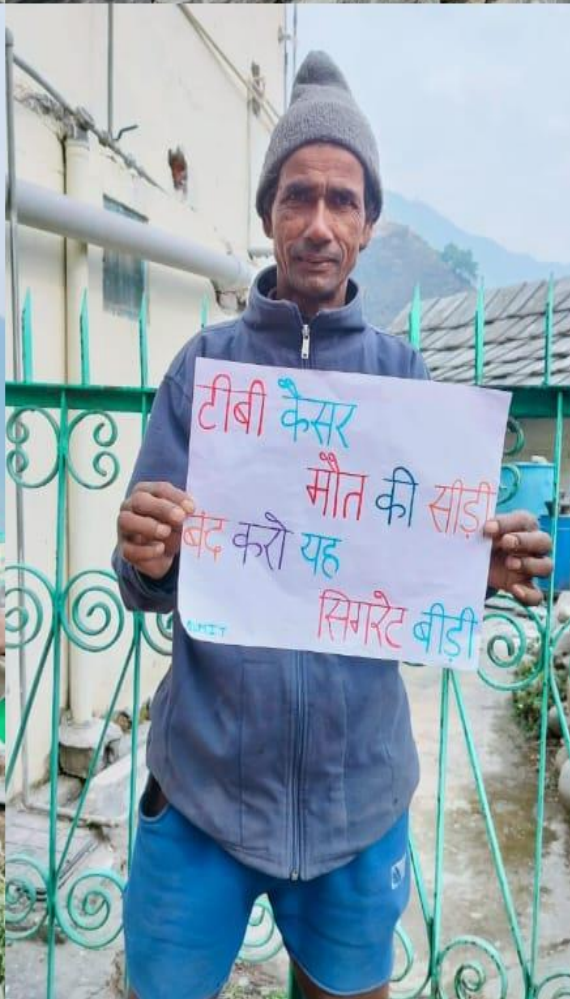 टीबी कैसर
मौत की सीड़ी
बंद करो यह
सिगरेट बीड़ी
SUMIT